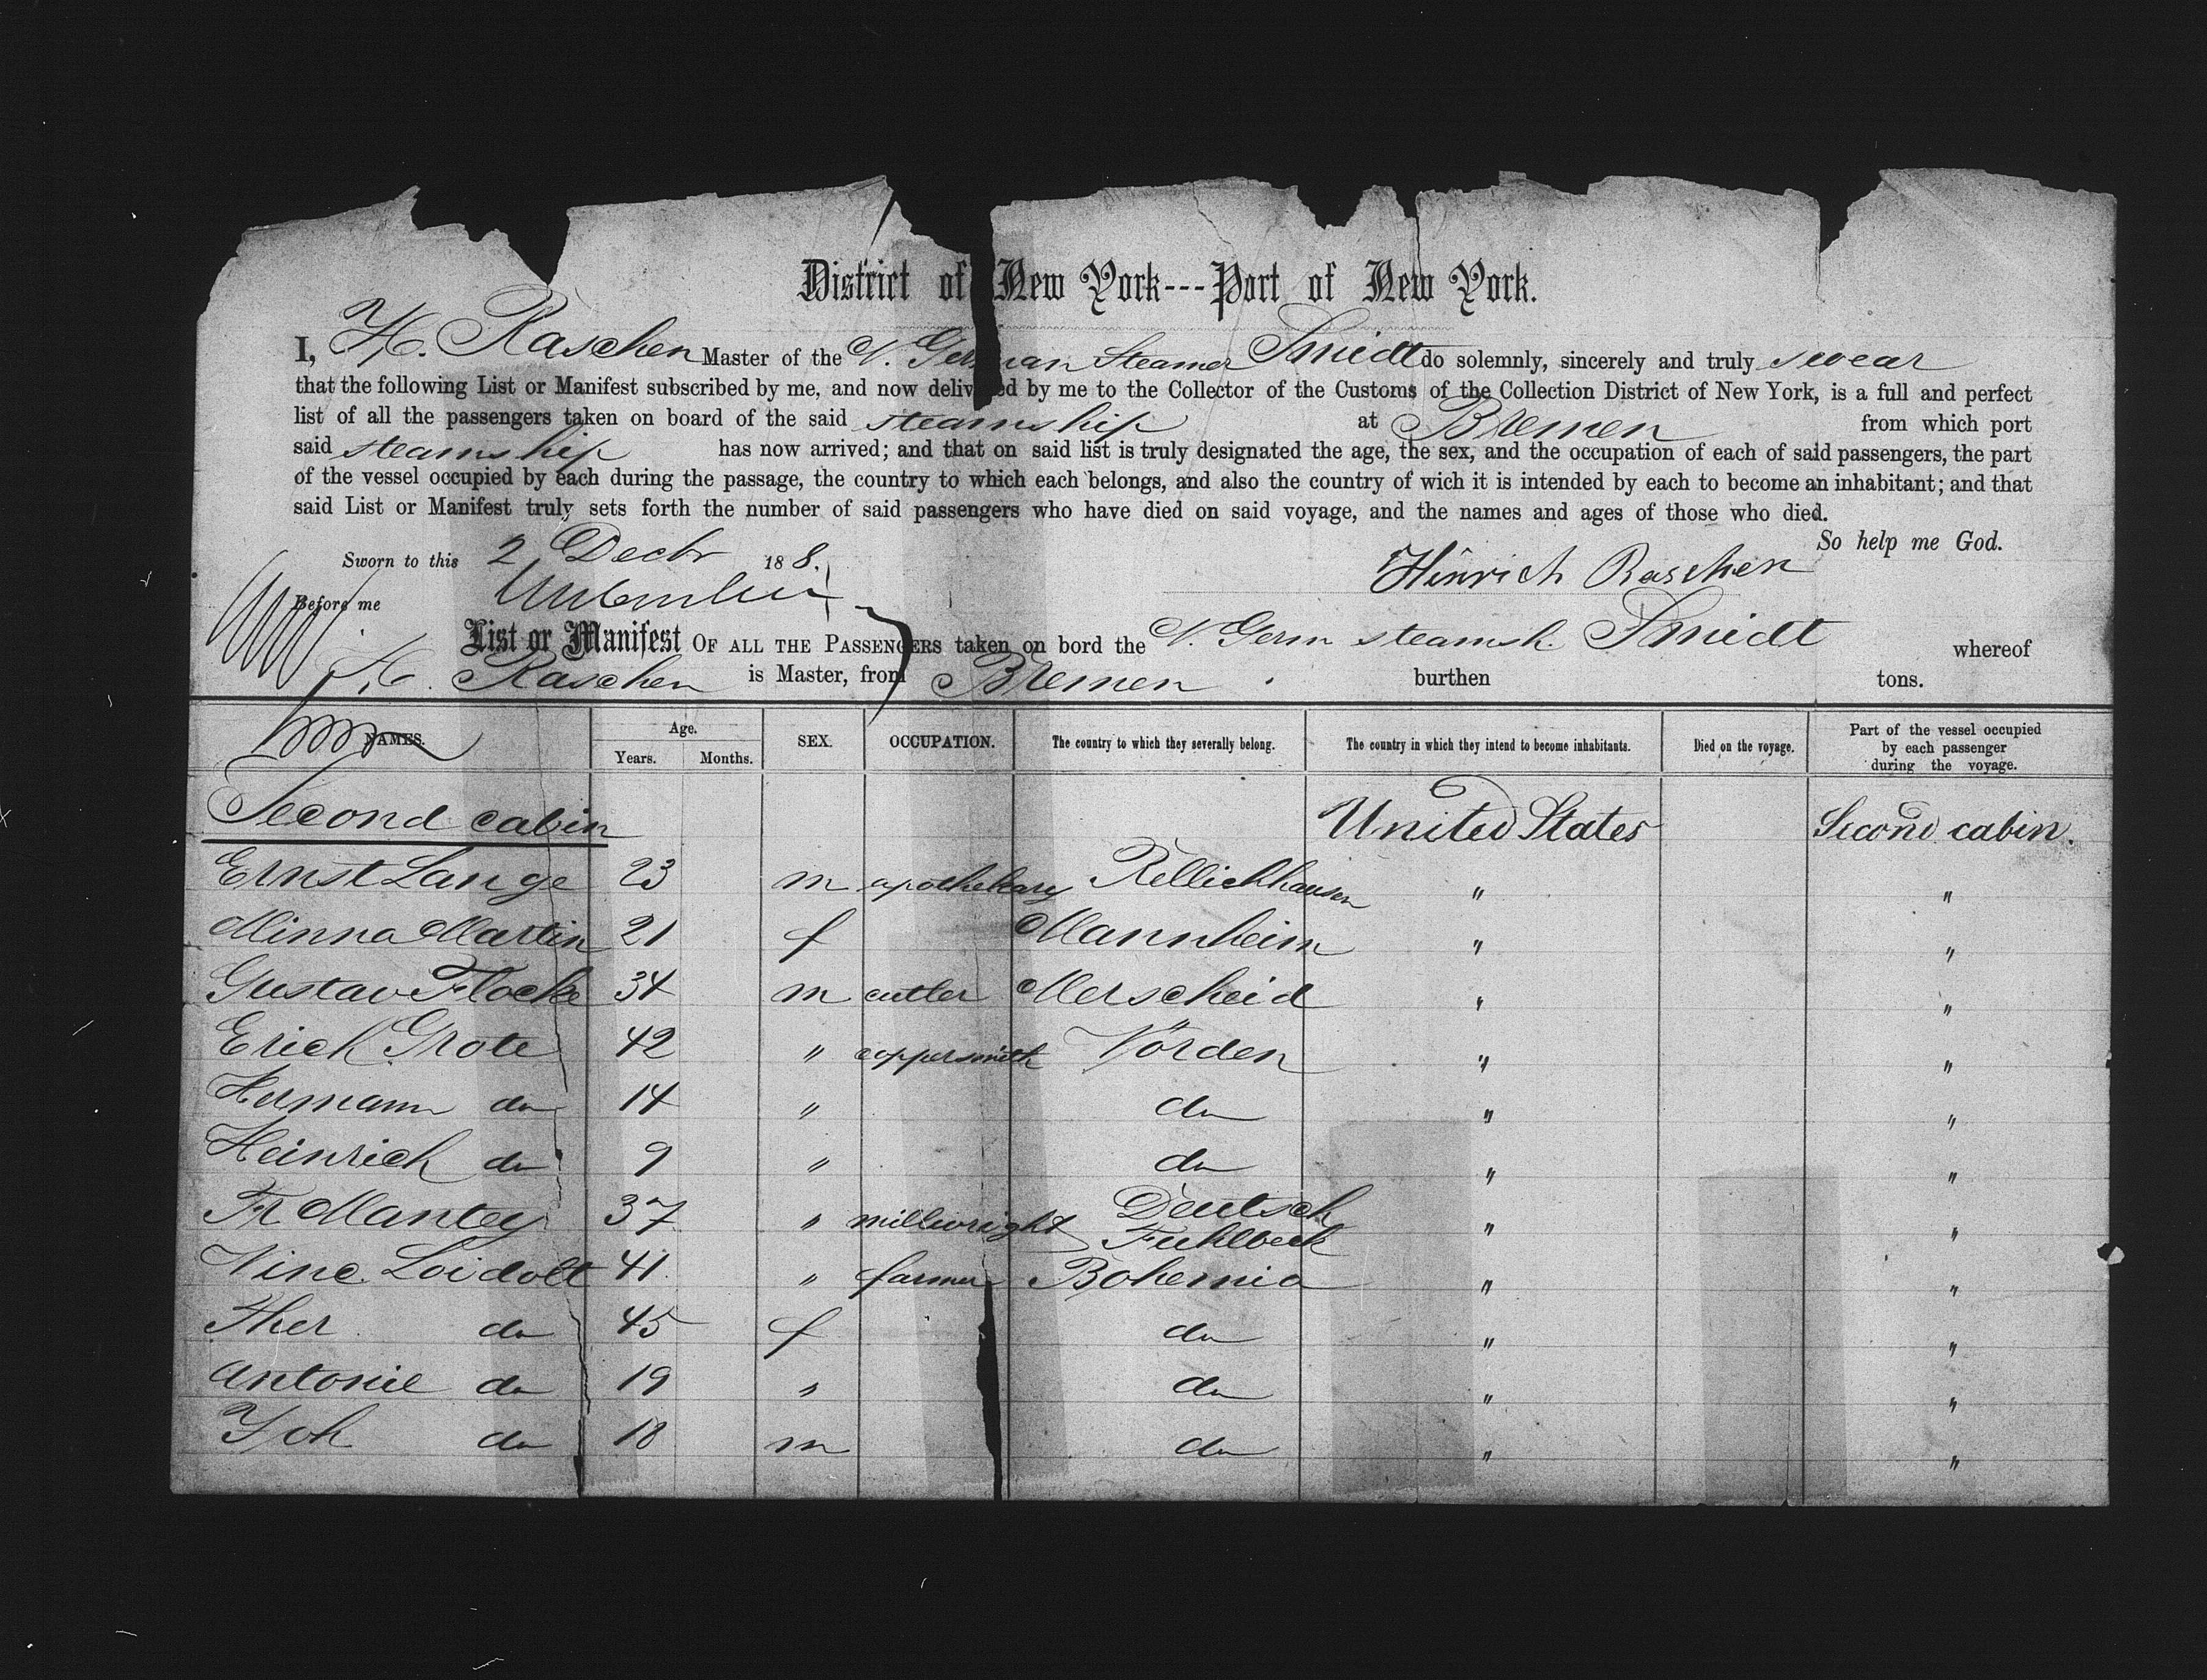 District of New York---Port of New York.
I, H. Raschen Master of the N. German Steamer Smidt do solemnly, sincerely and truly swear
that the following List or Manifest subscribed by me, and now delivered by me to the Collector of the Customs of the Collection District of New York, is a full and perfect
list of all the passengers taken on board of the said steamship at Bremen from which port
said steamship has now arrived; and that on said list is truly designated the age, the sex, and the occupation of each of said passengers, the part
of the vessel occupied by each during the passage, the country to which each belongs, and also the country of wich it is intended by each to become an inhabitant; and that
said List or Manifest truly sets forth the number of said passengers who have died on said voyage, and the names and ages of those who died.
So help me God.
Sworn to this 2 Decbr 188.
Hinrich Raschen
Before me
List or Manifest OF ALL THE PASSENGERS taken on bord the N. Germ steamsh. Smidt whereof
H. Raschen is Master, from Bremen. burthen tons.
NAMES. Age. Years. Months. SEX. OCCUPATION. The country to which they severally belong. The country in which they intend to become inhabitants. Died on the voyage. Part of the vessel occupied by each passenger during the voyage.
Second cabin United States Second cabin.
Ernst Lange 23 m apothekary Rellichhausen " "
Minna Martin 21 f Mannheim " "
Gustav Flocke 34 m cutler Merscheid " "
Erich Grote 42 " coppersmith Vörden " "
Hermann do 14 " do " "
Heinrich do 9 " do " "
Fr Mantey 37 " millwright Deutsch Fuhlbeck " "
Vinc. Loidolt 41 " farmer Bohemia " "
Ther do 45 f do " "
Antonie do 19 " do " "
Joh do 18 m do " "